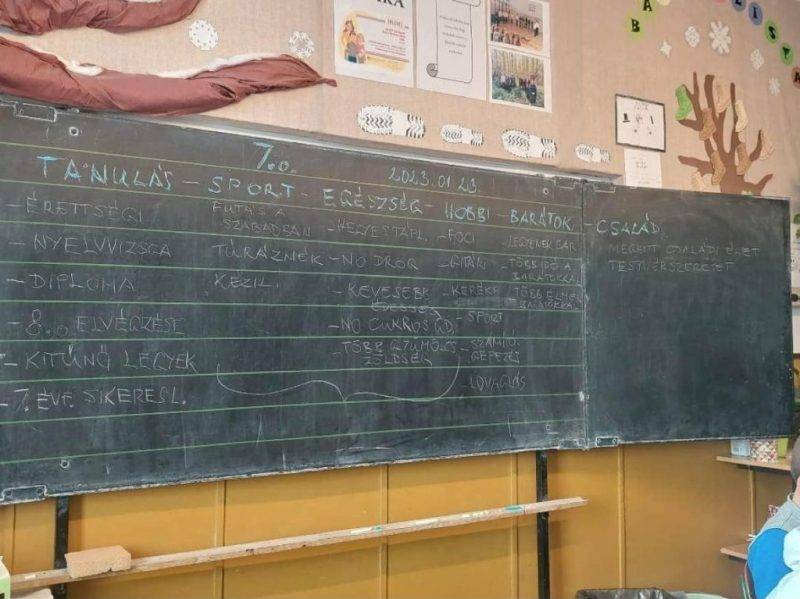 7.o.
2023.01.23.
TANULÁS - SPORT - EGÉSZSÉG - HOBBI - BARÁTOK - CSALÁD
- ÉRETTSÉGI
- NYELVVIZSGA
- DIPLOMA
- 8.o. ELVÉGZÉSE
- KITŰNŐ LEGYEK
- 7. ÉVF. SIKERES
FUTÁS A
SZABADBAN
TÚRÁZNÉK
KÉZIL.
- HELYES TÁPL.
- NO DROG
- KEVESEBB
ÉDESSÉG
- NO CUKROS ÜD.
- TÖBB GYÜMÖLCS
ZÖLDSÉG
- FOCI
- GITÁR
- KERÉKP.
- SPORT
- SZÁMÍTÓ-
GÉPEZÉS
- LOVAGLÁS
- LEGYENEK BAR.
- TÖBB IDŐ A
BARÁTOKKAL
TÖBB ÉLMÉNY
BARÁTOKKAL
MEGHITT CSALÁDI ÉLET
TESTVÉRSZERETET